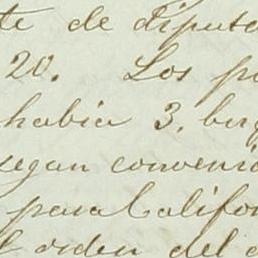 te de diputa
20. Los pa
habia 3. berg
segun convenio
para Califor
l orden del